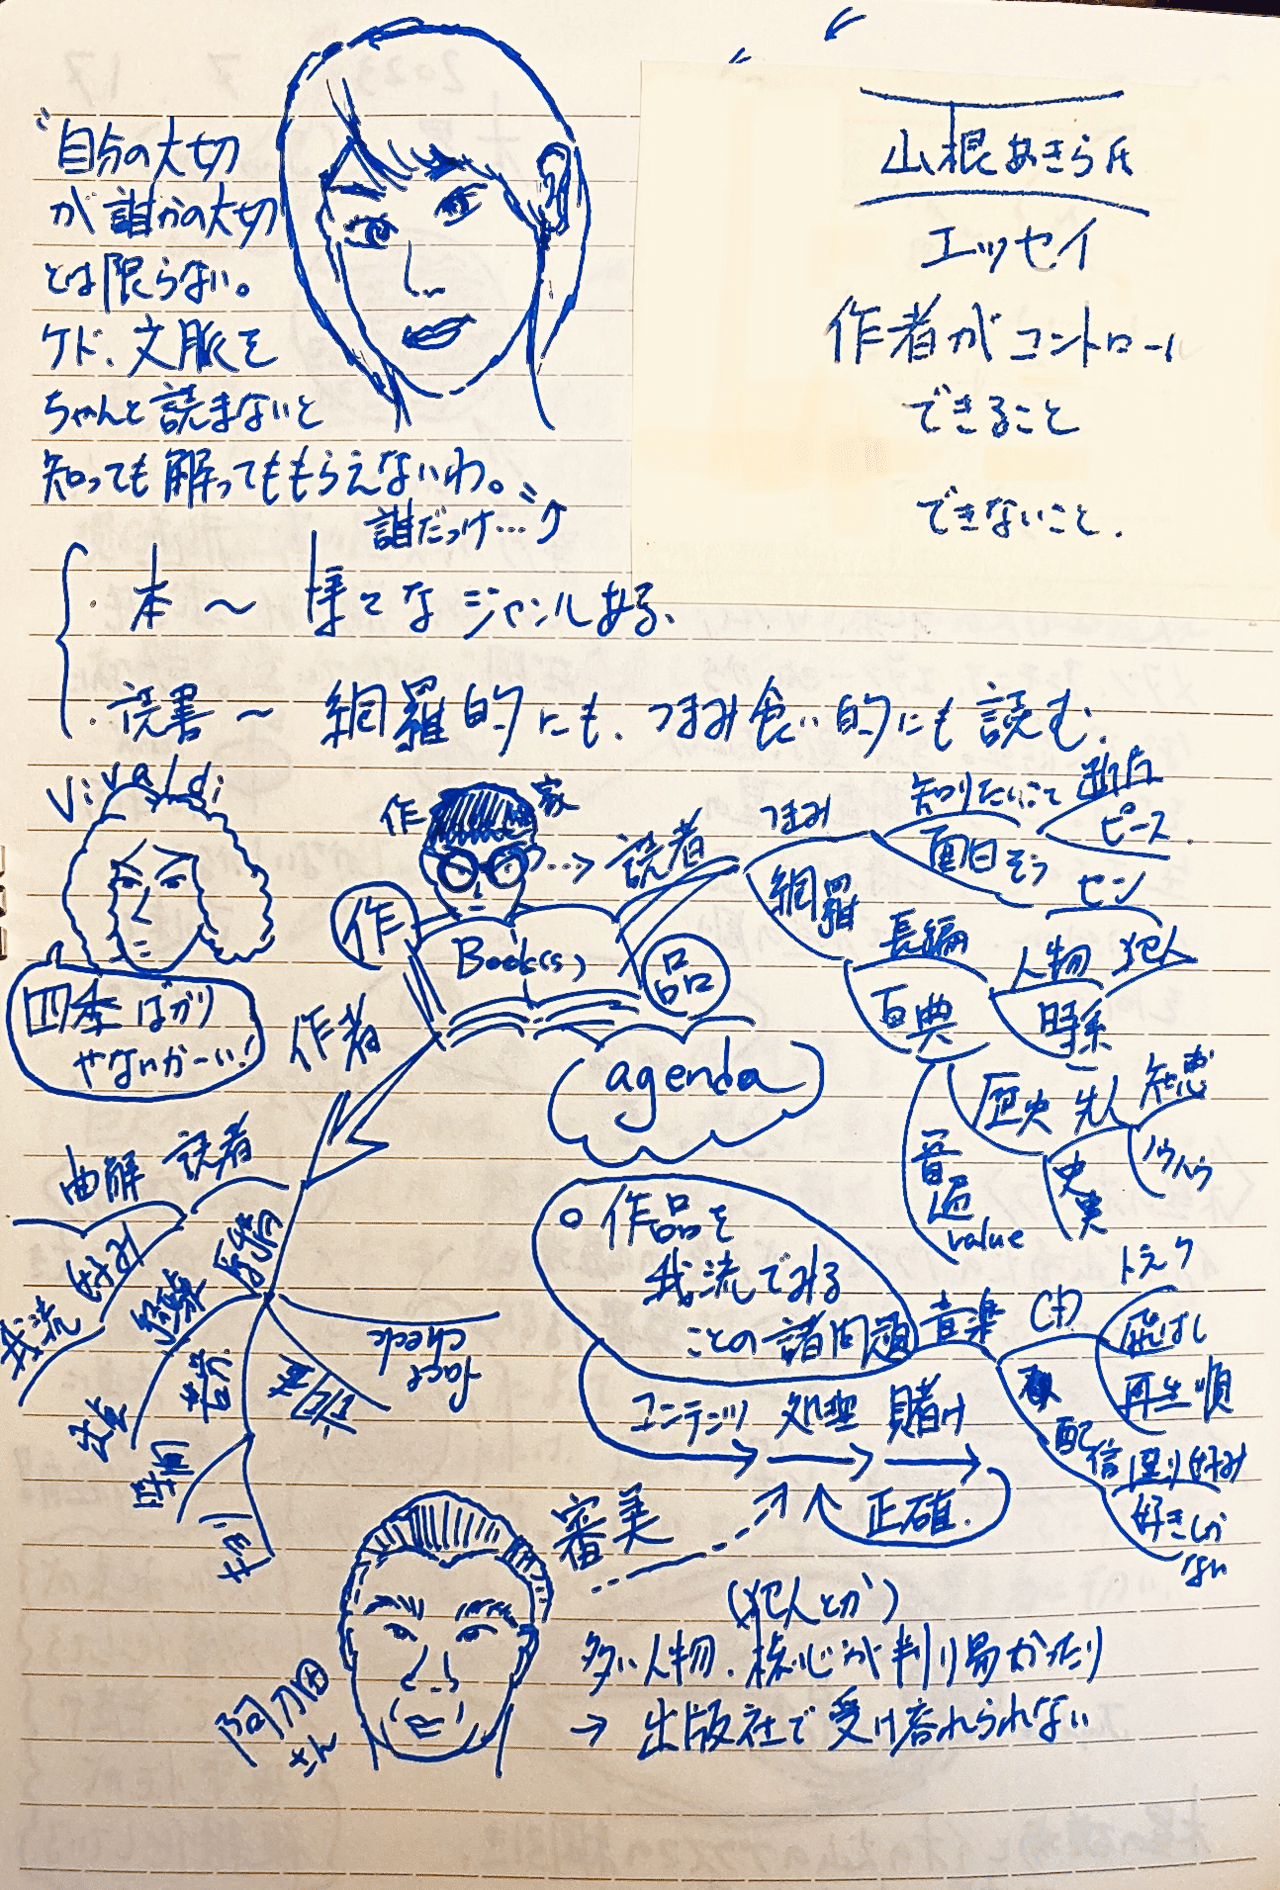 山根あきら氏
エッセイ
作者がコントロール
できること
できないこと.
“自分の大切
が誰かの大切
とは限らない。
ケド、文脈を
ちゃんと読まないと
知っても解ってももらえないわ。”
誰だっけ…
・本〜様々なジャンルある、
・読書〜網羅的にも、つまみ食い的にも読む.
Vivaldi
四季ばかり
やないかーい!
作家
…→読者
作
Book(s)
品
作者
agenda
つまみ
知りたいこと
面白そう
ピース
セン
網羅
長編
人物 犯人
百典
時系
歴史 先人 知恵
史実
ノウハウ
普遍
value
曲解 読者
好み
我流
経験
時間
fact
check
○作品を
我流でみる
ことの諸問題
コンテンツ 処理 賭け
正確.
審美
音楽 CD
飛ばし
再生順
配信
選り好み
好きしか
ない
阿刀田
さん
(犯人とか)
多い人物、核心が判り易かったり
→出版社で受け容れられない